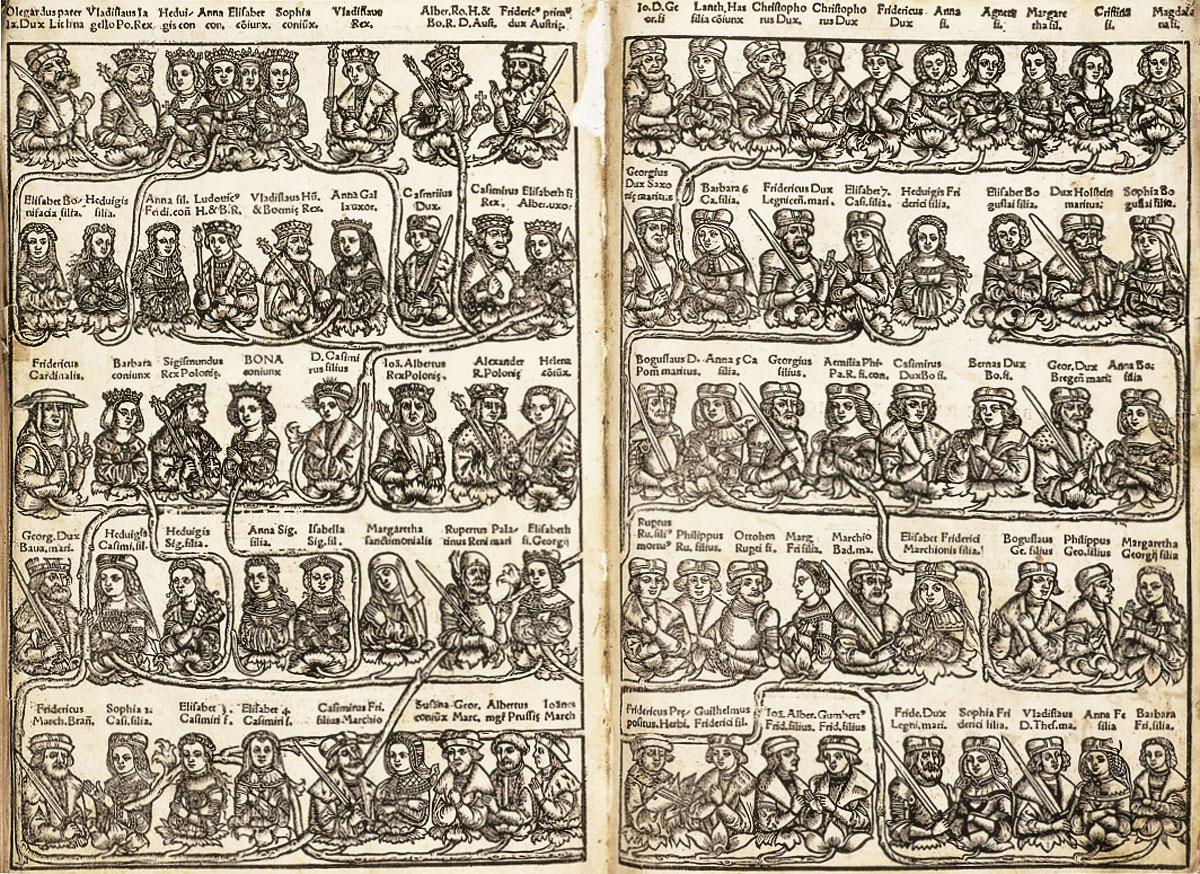 Olegardus pater Vladislaus Ia Hedui- Anna Elisabet Sophia Vladislaus Alber. Ro. H. & Frideric⁹ prim⁹
la. Dux Lithna gello Po. Rex gis con con. cōiunx. coniūx. Rex. Bo. R. D. Aust. dux Austrię.
Elisabet Bo- Heduigis Anna fil. Ludouic⁹ Vladislaus Hū. Anna Gal Casmirius Casimirus Elisabeth fi
nifacia filia. filia. Fridi. con H. & B. R. & Boemię Rex. la uxor. Dux. Rex. Alber. uxor
Fridericus Barbara Sigismundus BONA D. Casimi Ioā. Albertus Alexander Helena
Cardinalis. coniunx Rex Polonię. coniunx rus filius Rex Polonię. R. Polonię cōiūx.
Georg. Dux Heduigis Heduigis Anna Sig. Isabella Margaretha Rupertus Pala- Elisabeth
Baua. mari. Casimi. fil. Sig. filia. filia Sig. fil. sanctimonialis tinus Reni mari fi. Georgij
Fridericus Sophia 2. Elisabet 3. Elisabet 4. Casimirus Fri. Susana Geor. Albertus Ioānes
March. Bran. Casi. filia. Casimiri f. Casimiri f. filius Marchio coniūx Marc. mgr Prussię March
Io. D. Ge Lanth. Has Christopho Christopho Fridericus Anna Agnes Margare Cristina Magdale
or. fi filia cōiunx rus Dux. rus Dux Dux fi. fi. tha fil. fi. na fi.
Georgius
Dux Saxo Barbara 6 Fridericus Dux Elisabet 7. Heduigis Fri Elisabet Bo Dux Holstein Sophia Bo
nię maritus. Ca. filia. Legnicen. mari. Casi. filia. derici filia guslai filia. maritus. guslai filia.
Boguslaus D. Anna 5 Ca Georgius Aemilia Phi- Casimirus Bernas Dux Geor. Dux Anna Bo:
Pom maritus. filia. filius. Pa. R. fi. con. Dux Bo fi. Bo. fi. Bregen mari: filia
Ruptus
Ru. fili⁹ Philippus Ottohen Marg. Marchio Elisabet Friderici Boguslaus Philippus Margaretha
mortu⁹ Ru. filius. Rupti fi. Fri filia Bad. ma. Marchionis filia. Ge. filius Geo. filius Georgij filia
Fridericus Pre- Guilhelmus Ioā. Alber. Gumbert⁹ Fride. Dux Sophia Fri Vladislaus Anna Fe Barbara
positus. Herbi. Friderici fil. Frid. filius. Frid. filius Legni. mari. derici filia. D. Thes. ma. filia Fri. filia.